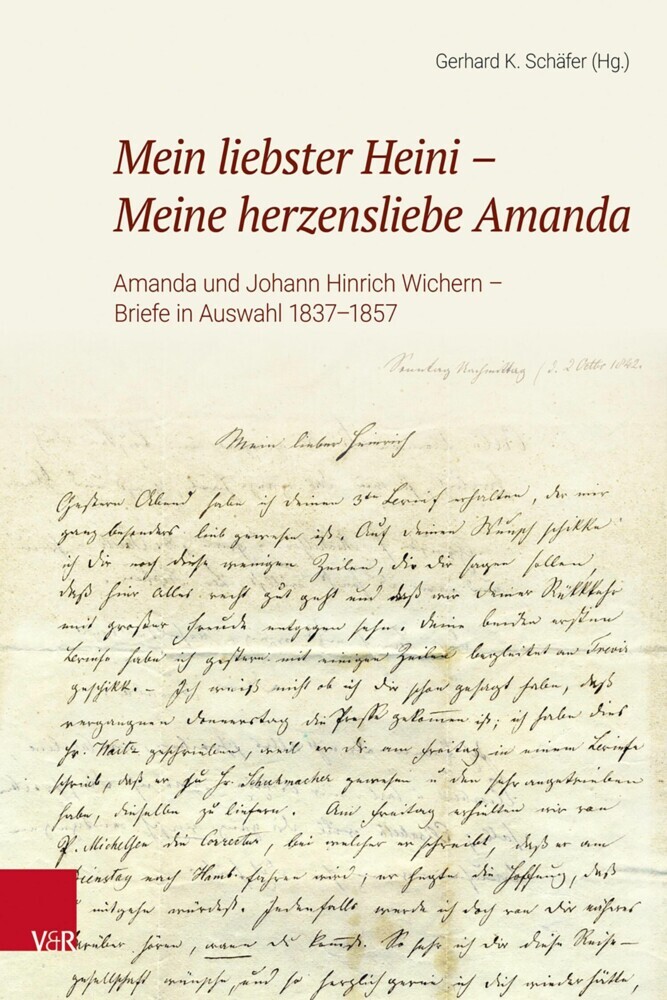 Gerhard K. Schäfer (Hg.)
Mein liebster Heini –
Meine herzensliebe Amanda
Amanda und Johann Hinrich Wichern –
Briefe in Auswahl 1837–1857
Sonntag Nachmittag / 2 Octbr 1842.
Mein lieber Heinrich
Gestern Abend habe ich deinen 3ten Brief erhalten, der mir
ganz besonders lieb gewesen ist. Auf deinen Wunsch schikke
ich dir noch diese wenigen Zeilen, die dir sagen sollen,
daß hier Alles recht gut geht und daß wir deiner Rükkehr
mit großer Freude entgegen sehn. Deine beiden ersten
Briefe habe ich gestern mit einigen Zeilen begleitet an
geschikt. – Ich weiß nicht ob ich dir schon gesagt habe, daß
vergangnen Donnerstag die Presse gekommen ist; ich habe dies
Hr. geschrieben, weil er dir am Freitag in einem Briefe
schrieb, daß er zu Hr. Schuhmacher gewesen u den sehr angetrieben
habe, dieselbe zu liefern. Am Freitag erhielten wir von
P. Michelsen die Correctur, bei welcher er schreibt, daß er am
Dienstag nach Hamb. fahren wird; er hegte die Hoffnung, daß
mitgehn würdest. Jedenfalls werde ich doch von dir näheres
darüber hören, wann du kommst. So sehr ich dir diese Reise–
gesellschaft wünsche, und so herzlich gerne ich dich wieder hätte,
V&R